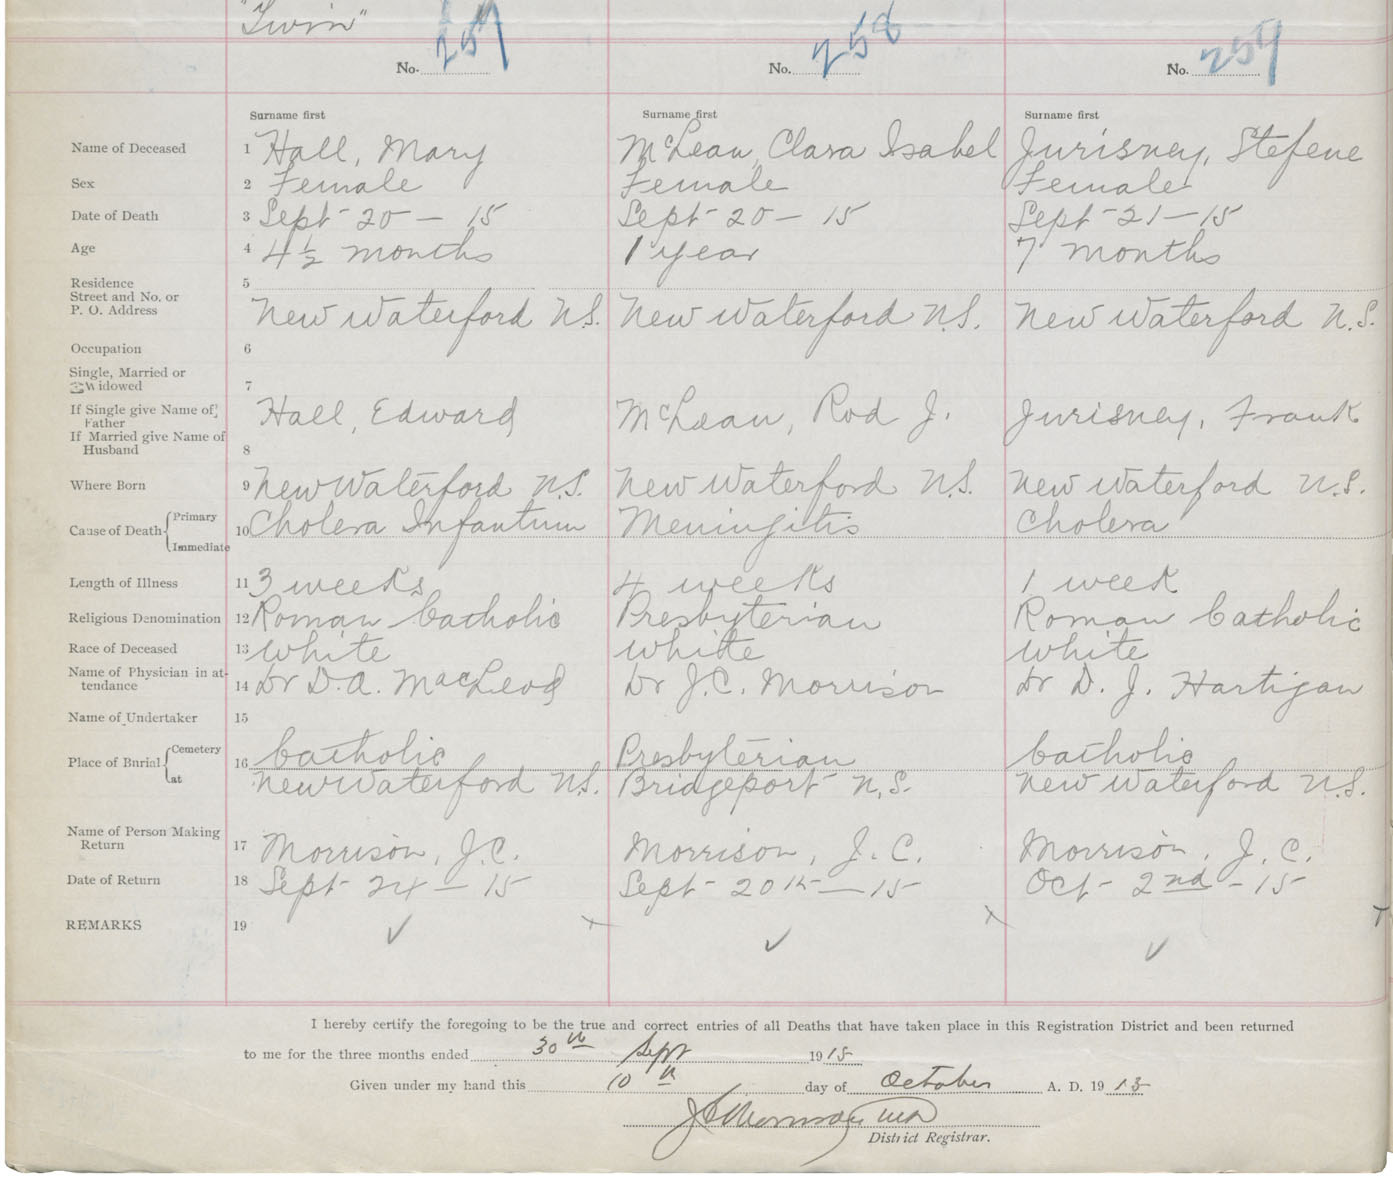 "Twin"
No. 257 No. 258 No. 259
Surname first Surname first Surname first
Name of Deceased 1 Hall, Mary McLean, Clara Isabel Jurisney, Stefene
Sex 2 Female Female Female
Date of Death 3 Sept - 20 - 15 Sept - 20 - 15 Sept - 21 - 15
Age 4 4½ months 1 year 7 months
Residence 5
Street and No. or
P. O. Address New Waterford N.S. New Waterford N.S. New Waterford N.S.
Occupation 6
Single, Married or
Widowed 7
If Single give Name of Father Hall, Edward McLean, Rod J. Jurisney, Frank
If Married give Name of
Husband 8
Where Born 9 New Waterford N.S. New Waterford N.S. New Waterford N.S.
Cause of Death { Primary 10 Cholera Infantum Meningitis Cholera
Immediate
Length of Illness 11 3 weeks 4 weeks 1 week
Religious Denomination 12 Roman Catholic Presbyterian Roman Catholic
Race of Deceased 13 White White White
Name of Physician in attendance 14 Dr D.A. MacLeod Dr J.C. Morrison Dr D. J. Hartigan
Name of Undertaker 15
Place of Burial { Cemetery 16 Catholic Presbyterian Catholic
at New Waterford N.S. Bridgeport N.S. New Waterford N.S.
Name of Person Making
Return 17 Morrison, J.C. Morrison, J.C. Morrison, J.C.
Date of Return 18 Sept - 24 - 15 Sept - 20th - 15 Oct - 2nd - 15
REMARKS 19
I hereby certify the foregoing to be the true and correct entries of all Deaths that have taken place in this Registration District and been returned
to me for the three months ended 30th Sept 1915
Given under my hand this 10th day of October A. D. 1915
J C Morrison MD
District Registrar.